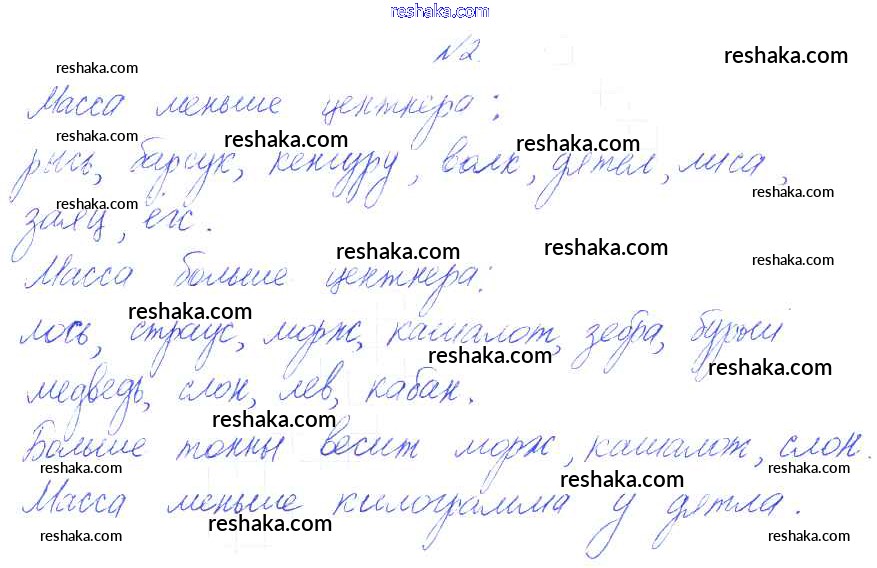 reshaka.com
№2.
reshaka.com
reshaka.com
Масса меньше центнера:
reshaka.com reshaka.com reshaka.com
рысь, барсук, кенгуру, волк, дятел, лиса,
reshaka.com reshaka.com
заяц, ёж.
reshaka.com reshaka.com reshaka.com
Масса больше центнера:
reshaka.com
лось, страус, морж, кашалот, зебра, бурый
reshaka.com reshaka.com
медведь, слон, лев, кабан.
reshaka.com
Больше тонны весит морж, кашалот, слон.
reshaka.com reshaka.com reshaka.com
Масса меньше килограмма у дятла.
reshaka.com reshaka.com reshaka.com